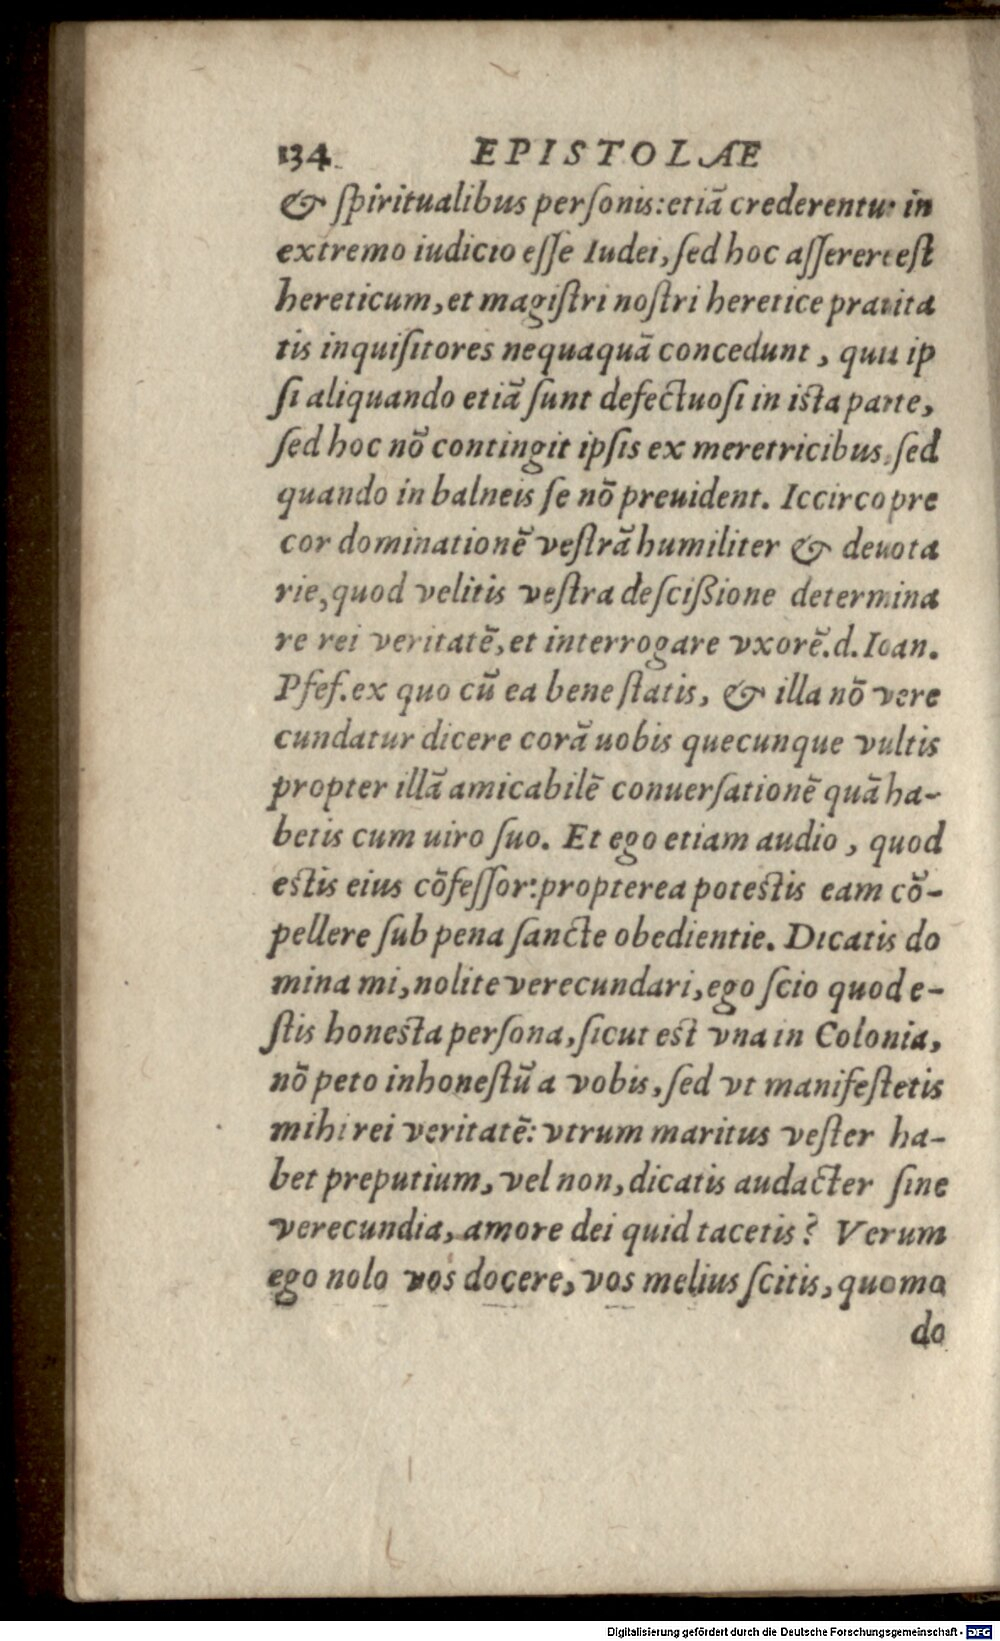 134 EPISTOLÆ
& ſpiritualibus perſonis: etiã crederentur in
extremo iudicio eſſe Iudei, ſed hoc aſſerere eſt
hereticum, et magiſtri noſtri heretice prauita
tis inquiſitores nequaquã concedunt, quia ip
ſi aliquando etiã ſunt defectuoſi in iſta parte,
ſed hoc nõ contingit ipſis ex meretricibus, ſed
quando in balneis ſe nõ preuident. Iccirco pre
cor dominationẽ veſtrã humiliter & deuota
rie, quod velitis veſtra deſcißione determina
re rei veritatẽ, et interrogare vxorẽ. d. Ioan.
Pfef. ex quo cũ ea bene ſtatis, & illa nõ vere
cundatur dicere corã uobis quecunque vultis
propter illã amicabilẽ conuerſationẽ quã ha-
betis cum uiro ſuo. Et ego etiam audio, quod
eſtis eius cõfeſſor: propterea poteſtis eam cõ-
pellere ſub pena ſancte obedientie. Dicatis do
mina mi, nolite verecundari, ego ſcio quod e-
ſtis honeſta perſona, ſicut eſt vna in Colonia,
nõ peto inhoneſtũ a vobis, ſed vt manifeſtetis
mihi rei veritatẽ: vtrum maritus veſter ha-
bet preputium, vel non, dicatis audacter ſine
verecundia, amore dei quid tacetis? Verum
ego nolo vos docere, vos melius ſcitis, quomo
do
Digitalisierung gefördert durch die Deutsche Forschungsgemeinschaft - DFG